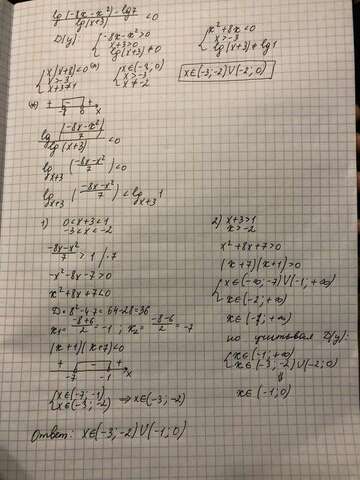 lg(-8x-x²)-lg7 / lg(x+3) <0
D(y): { -8x-x²>0 x+3>0 lg(x+3)≠0
{ x²+8x<0 x>-3 lg(x+3)≠lg1
{ x(x+8)<0 (*) x>-3 x+3≠1
{ x∈(-8;0) x>-3 x≠-2
x∈(-3;-2)∪(-2;0)
(*) + - + -8 0 x
lg(-8x-x²/7) / lg(x+3) <0
log x+3 (-8x-x²/7) <0
log x+3 (-8x-x²/7) < log x+3 1
1) 0<x+3<1
-3<x<-2
-8x-x²/7 >1 |·7
-x²-8x-7>0
x²+8x+7<0
D=8²-4·7=64-28=36
x₁=-8+6/2=-1; x₂=-8-6/2=-7
(x+1)(x+7)<0
+ - + -7 -1 x
{ x∈(-7;-1) x∈(-3;-2) ⇒ x∈(-3;-2)
2) x+3>1
x>-2
x²+8x+7>0
(x+7)(x+1)>0
{ x∈(-∞;-7)∪(-1;+∞)
x∈(-2;+∞)
x∈(-1;+∞)
но учитывая D(y):
{ x∈(-1;+∞)
x∈(-3;-2)∪(-2;0)
⇓
x∈(-1;0)
Ответ: x∈(-3;-2)∪(-1;0)